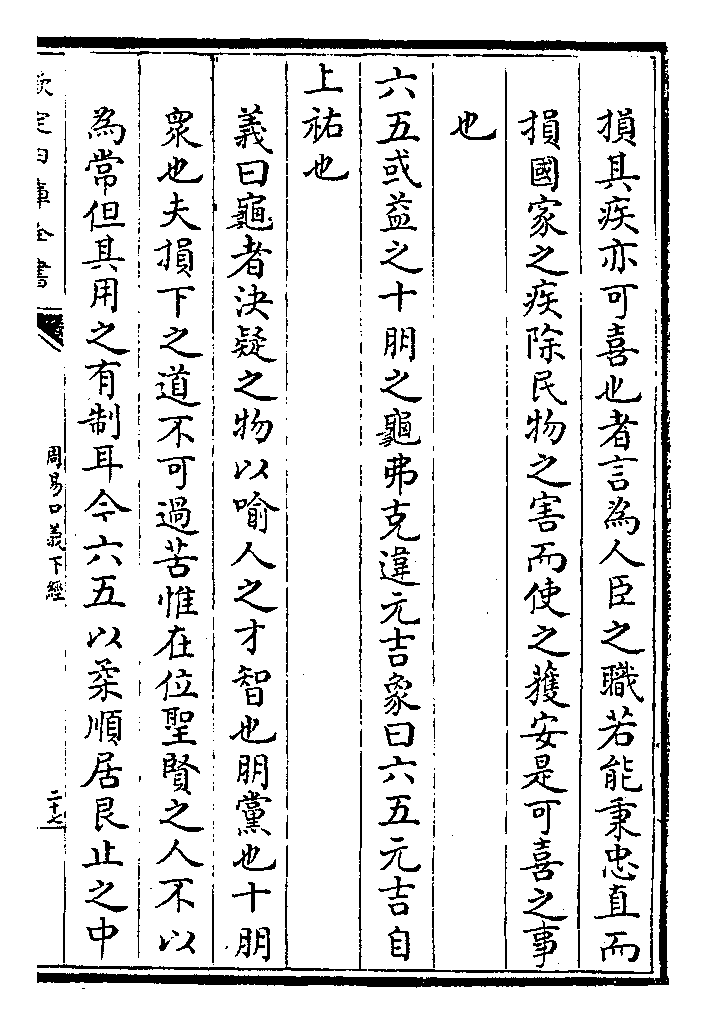 損其疾亦可喜也者言為人臣之職若能秉忠直而
損國家之疾除民物之害而使之獲安是可喜之事
也
六五或益之十朋之龜弗克違元吉象曰六五元吉自
上祐也
義曰龜者決疑之物以喻人之才智也朋黨也十朋
衆也夫損下之道不可過苦惟在位聖賢之人不以
為常但其用之有制耳今六五以柔順居艮止之中
欽定四庫全書
周易口義下經
二十七